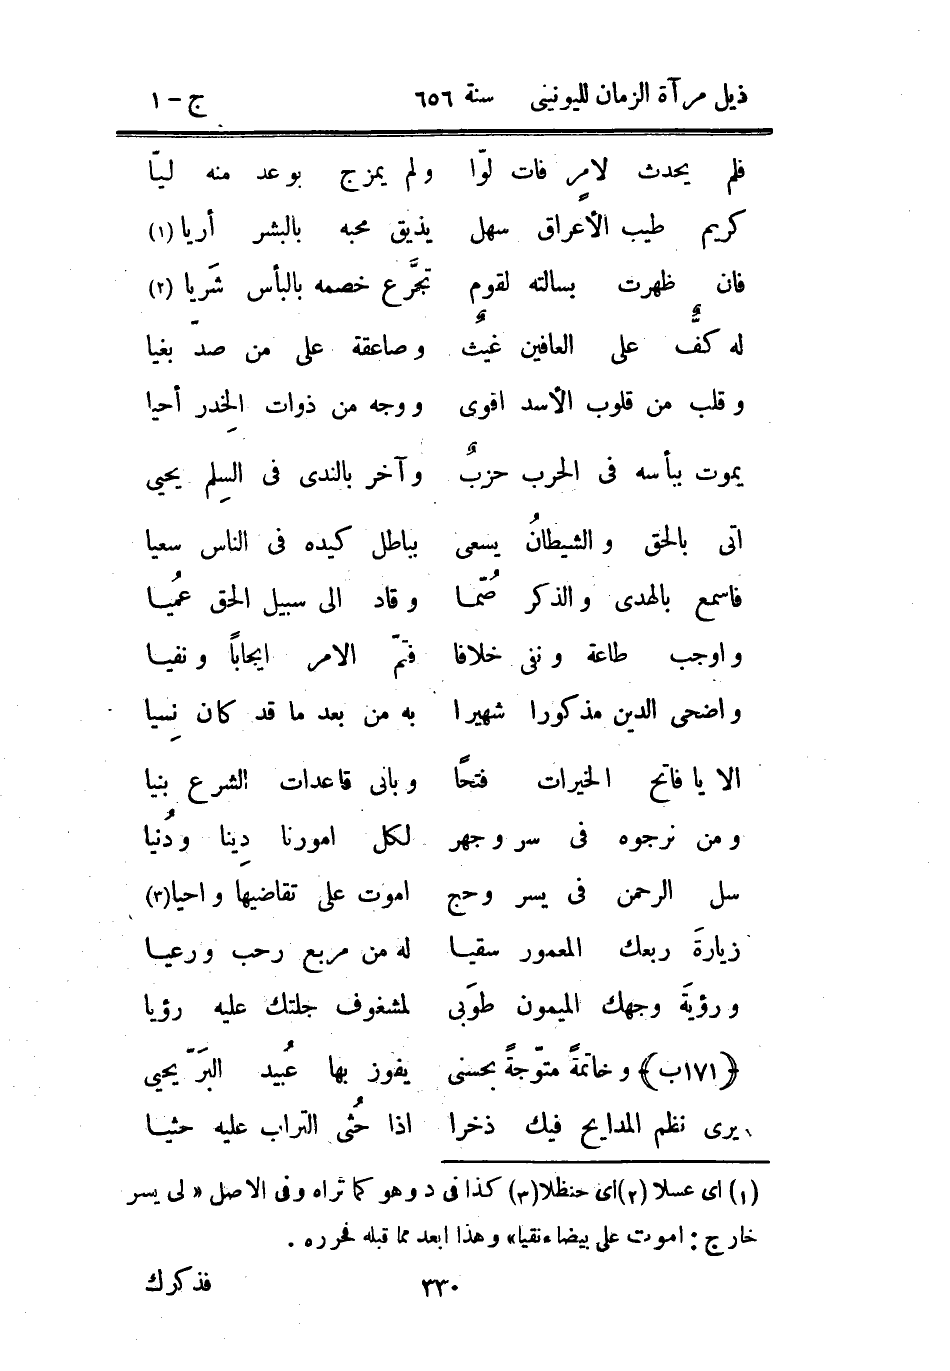 ذيل مرآة الزمان لليونينى سنة ٦٥٦ ج – ١
فلم يحدث لامرٍ فات لوّا ولم يمزج بوعد منه ليّا
كريم طيب الأعراق سهل يذيق محبه بالبشر أريا (١)
فان ظهرت بسالته لقومٍ تجرَّع خصمه بالبأس شَريا (٢)
له كفٌّ على العافين غيثٌ وصاعقة على من صدّ بغيا
وقلب من قلوب الأسد اقوى ووجه من ذوات الخِدر أحيا
يموت ببأسه فى الحرب حزبٌ وآخر بالندى فى السِلم يحيى
اتى بالحق والشيطانُ يسعى بباطل كيده فى الناس سعيا
فاسمع بالهدى والذكر صُمّا وقاد الى سبيل الحق عُميا
واوجب طاعة ونفى خلافا فتمّ الامر ايجاباً ونفيا
واضحى الدين مذكورا شهيرا به من بعد ما قد كان نِسيا
الا يا فاتح الخيرات فتحًا وبانى قاعدات الشرع بنيا
ومن نرجوه فى سر وجهر لكل امورنا دِينا ودُنيا
سل الرحمن فى يسر وحج اموت على تقاضيها واحيا(٣)
زيارةَ ربعك المعمور سقيا له من مربع رحب ورعيا
ورؤيةَ وجهك الميمون طوَبى لمشغوف جلتك عليه رؤيا
﴿١٧١ب﴾ وخاتمةً متوّجةً بحسنى يفوز بها عُبيد البَرّ يحيى
يرى نظم المدايح فيك ذخرا اذا حُثى التراب عليه حثيا
(١) اى عسلا (٢)اى حنظلا(٣) كذا فى د وهو كما تراه وفى الاصل « لى يسر
خارج : اموت على بيضاء نقيا» وهذا ابعد مما قبله فحرره .
٣٣٠ فذكرك